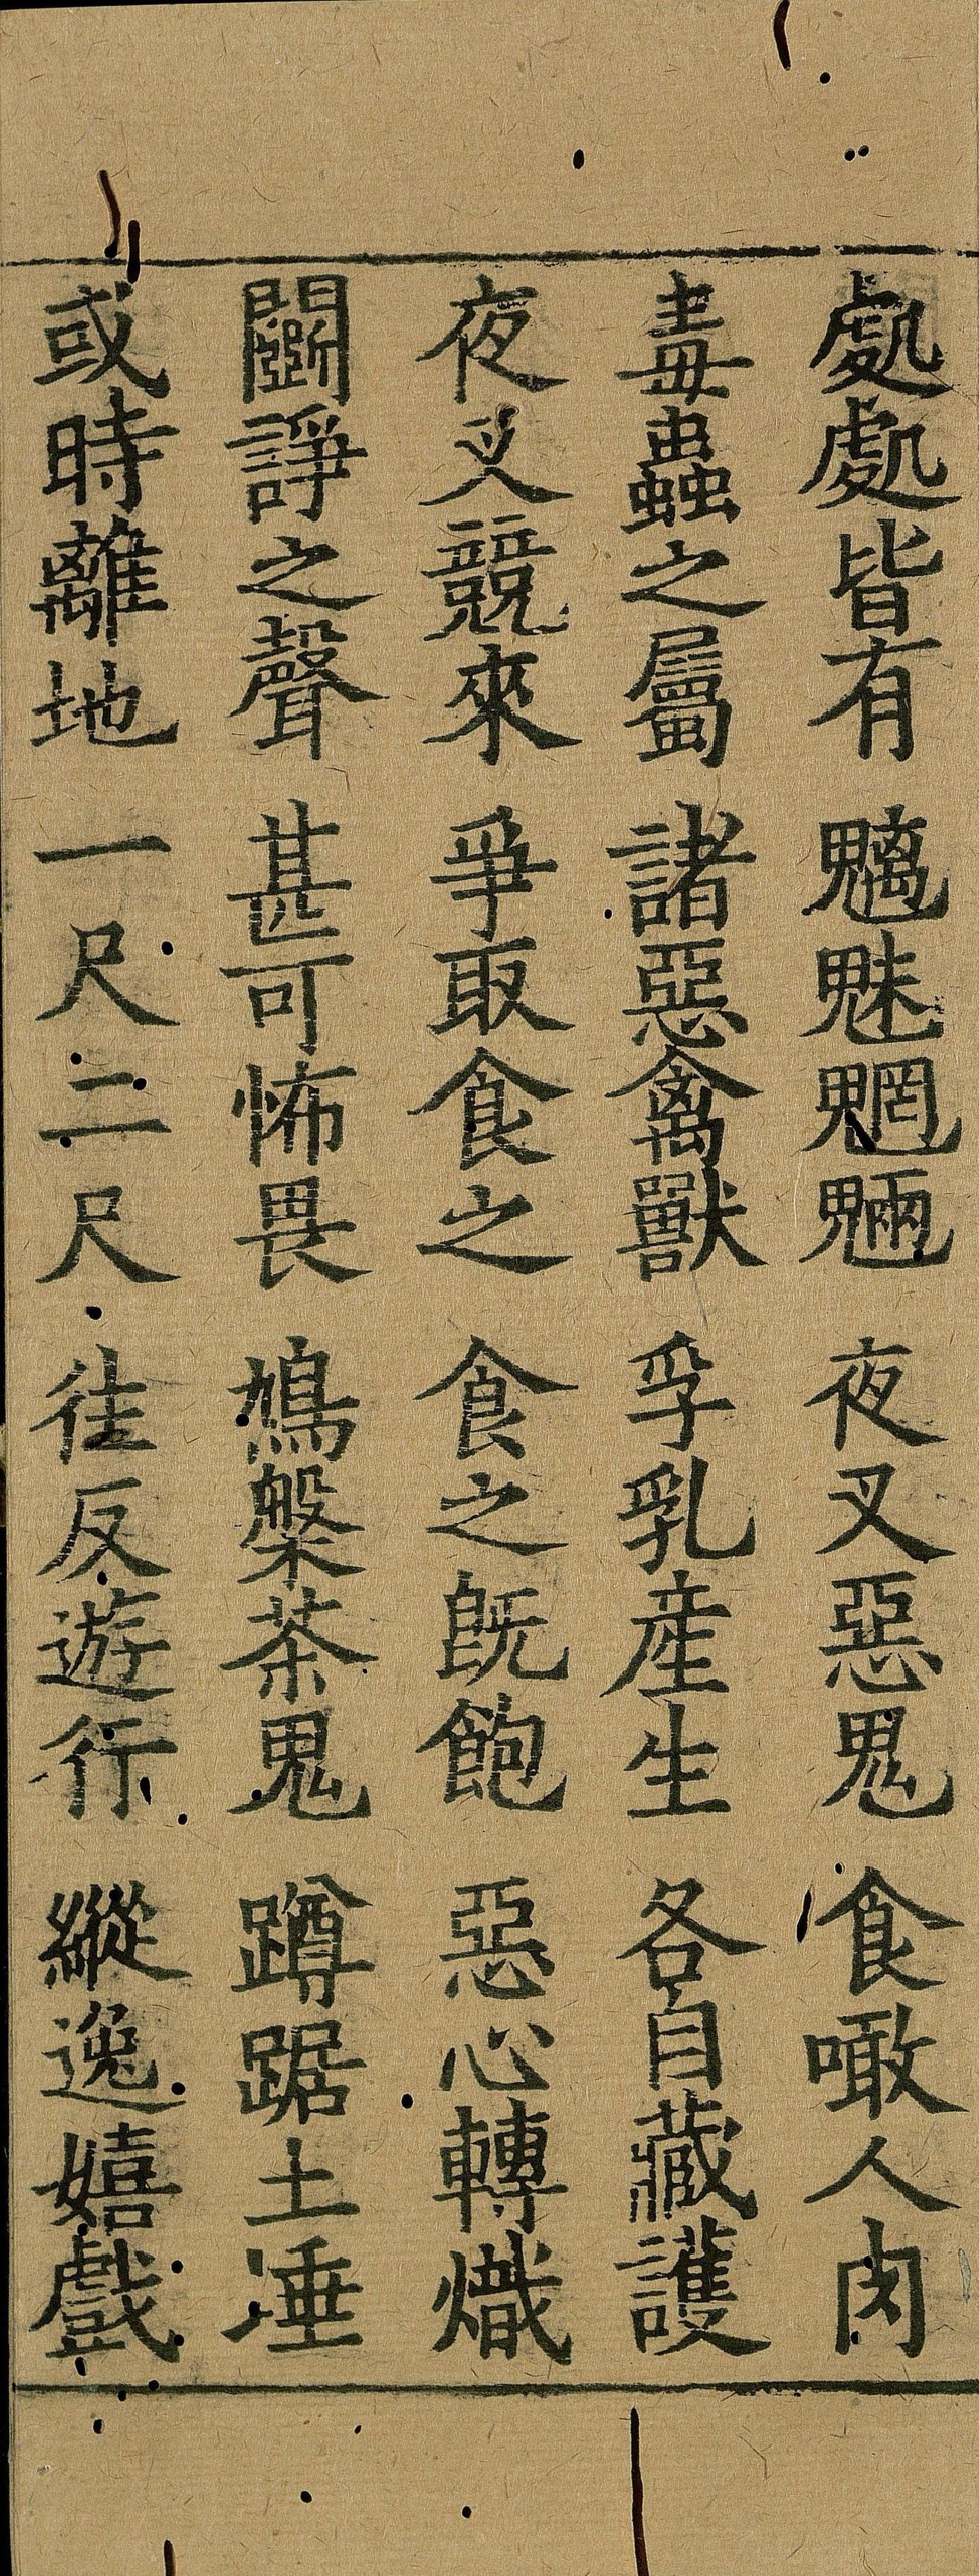 處處皆有　魑魅魍魎　夜叉惡鬼　食噉人肉
毒蟲之屬　諸惡禽獸　孚乳產生　各自藏護
夜叉競來　爭取食之　食之既飽　惡心轉熾
鬪諍之聲　甚可怖畏　鳩槃茶鬼　蹲踞土埵
或時離地　一尺二尺　往反遊行　縱逸嬉戲